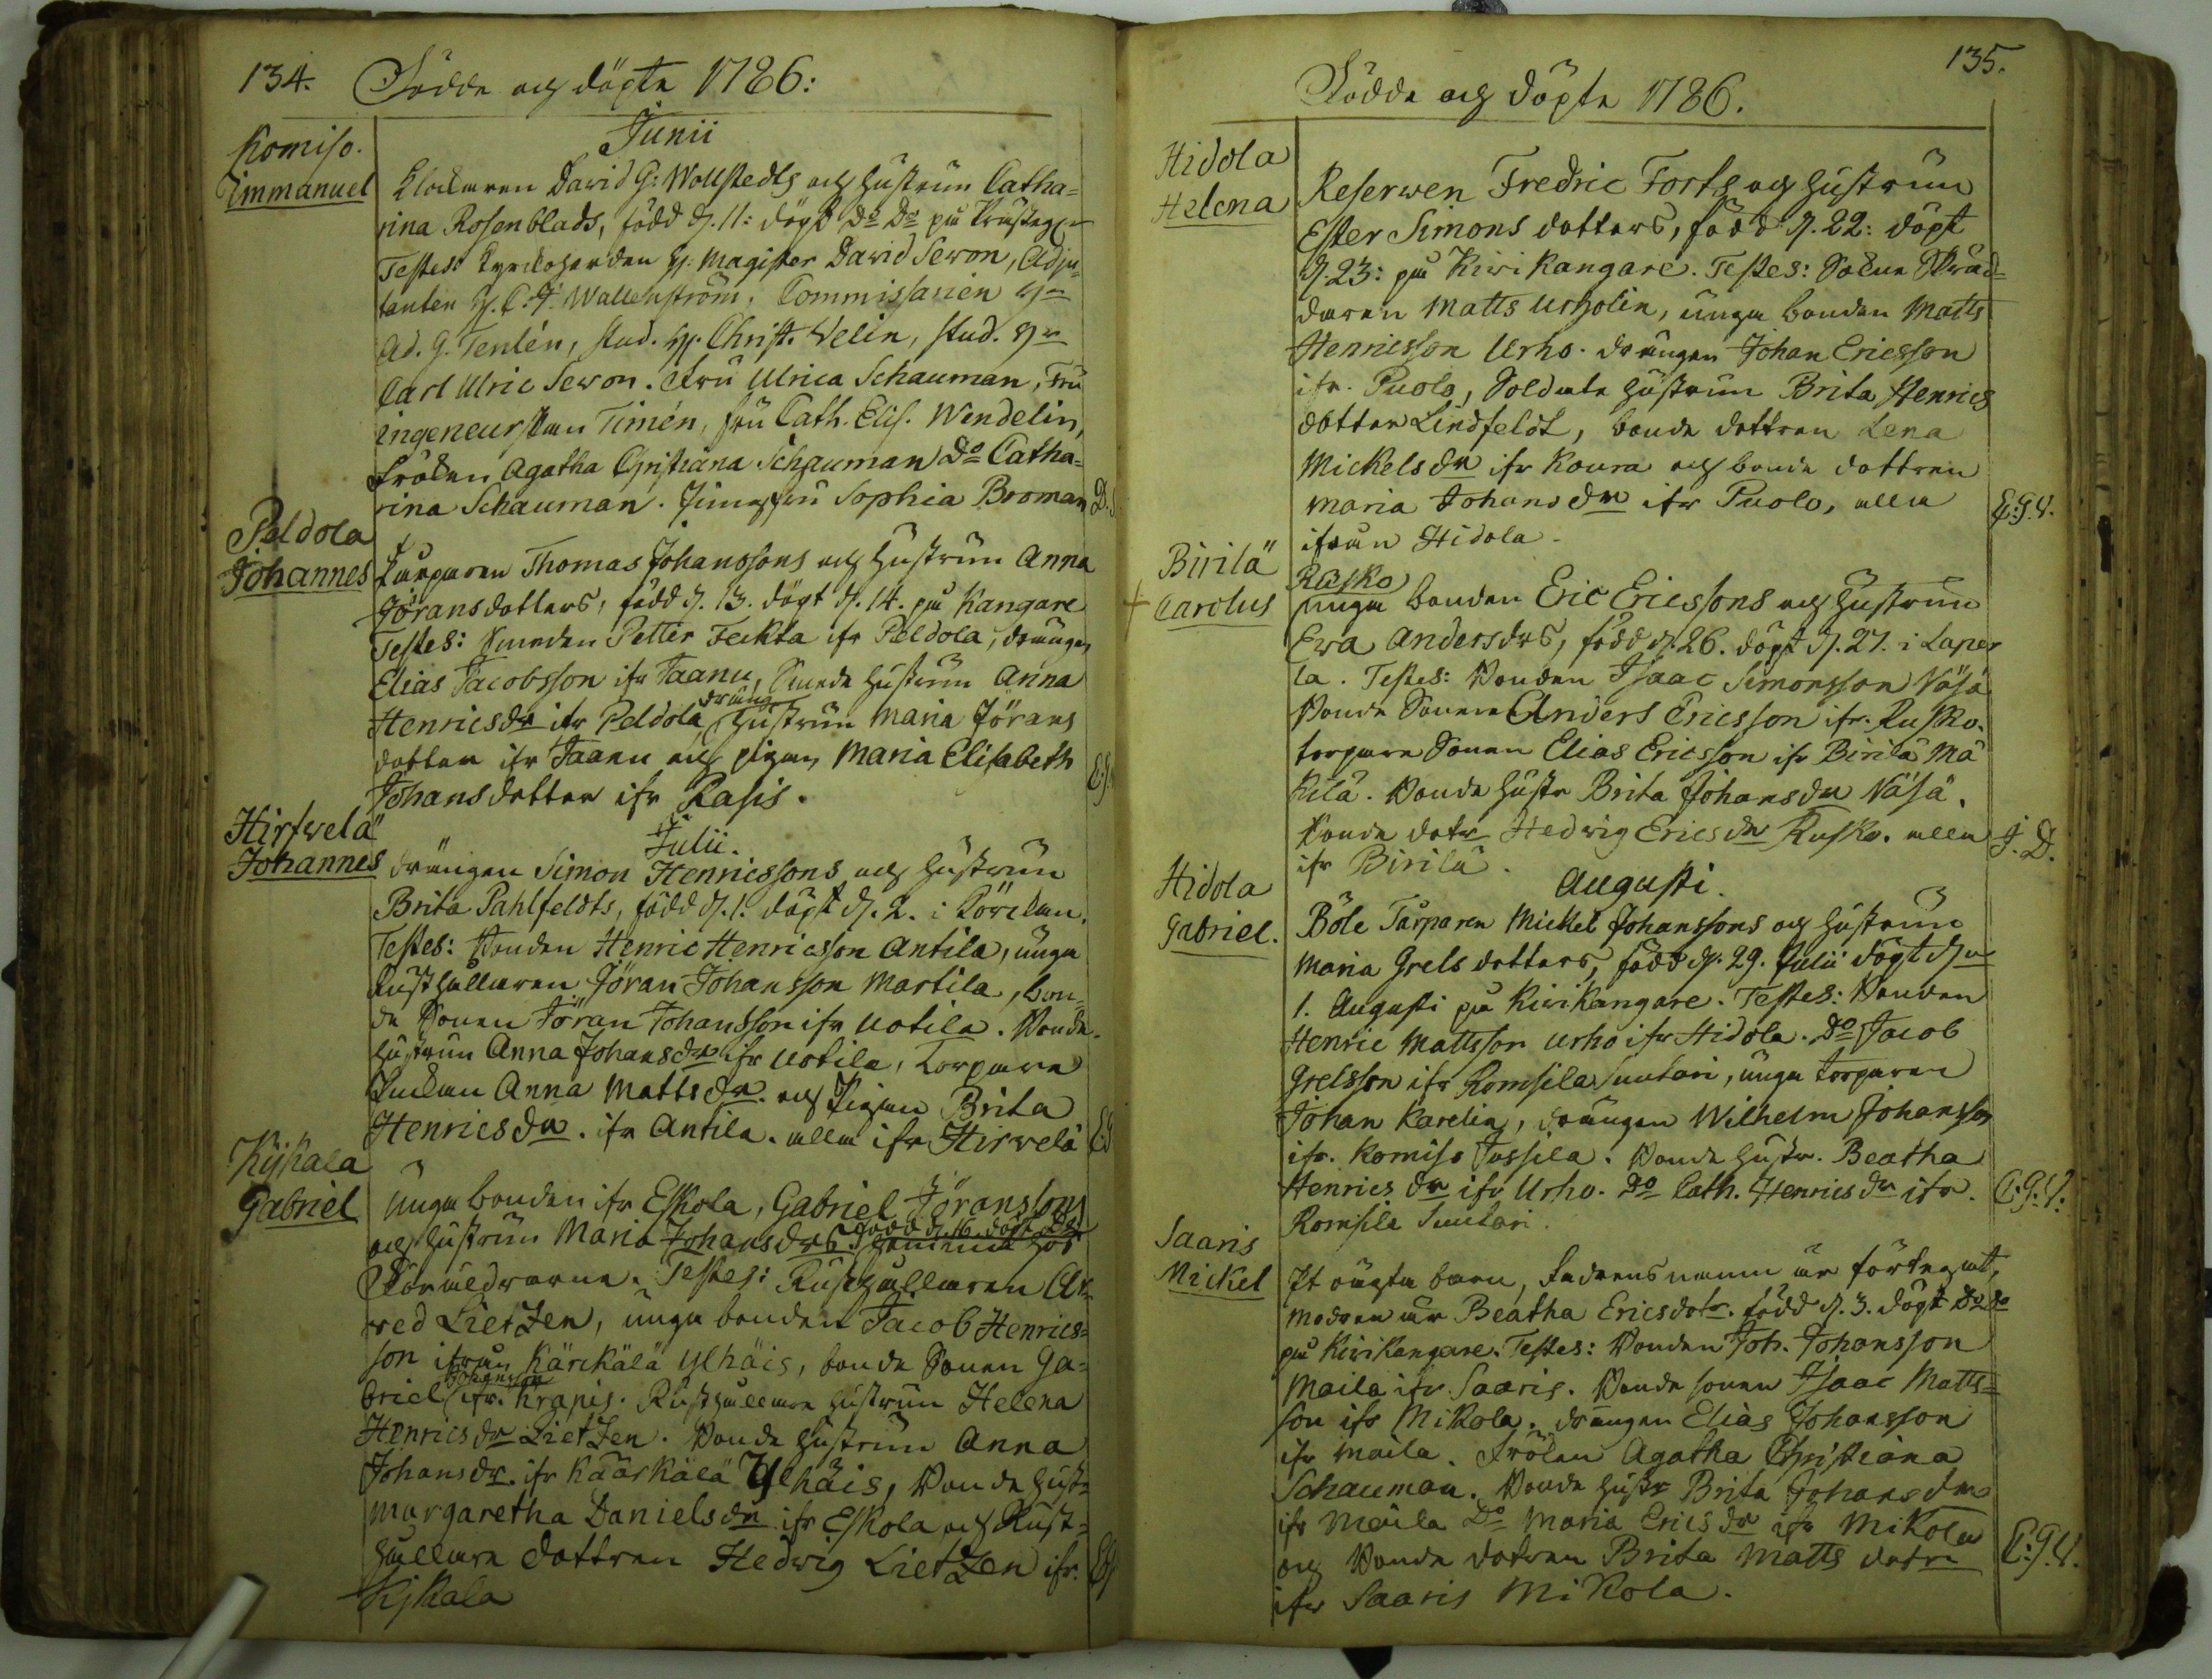 134. Födde och döpte 1786:
Junii
Komiso.
Emmanuel
Klockaren David G: Wollstedts och hustrun Catha=
rina Rosenblads, född d. 11: döpt Do Do på
Testes: Kyrkoherden H: Magister David Sewon, Adju=
tanten H. C. F. Wallenström, Commissarien Hr
Ad. G. Tenlén, stud. H. Christ. Velin, stud. Hr
Carl Ulric Sewon. Fru Ulrica Schauman, Fru
ingeneurskan Timén, fru Cath. Elis. Wendelin,
Fröken Agatha Christiana Schauman Do Catha=
rina Schauman. Jungfru Sophia Broman
Peldola
Johannes
Torparen Thomas Johanssons och hustrun Anna
Jöransdotters, född d. 13. döpt d. 14. på Kangare
Testes: Smeden Petter Feckta ifr Peldola, drängen
Elias Jacobsson ifr Taanu, Smeds hustrun Anna
Henricsdr ifr Peldola, dräng hustrun Maria Jörans
dotter ifr Taanu och pigan Maria Elisabeth
Johansdotter ifr Rasis.
Julii.
Hirfwelä
Johannes
drängen Simon Henricssons och hustrun
Brita Pahlfeldts, född d. 1. döpt d. 2. i Körckan.
Testes: Bonden Henric Henricsson Antila, unga
Rusthållaren Jöran Johansson Martila, bon=
de Sonen Jöran Johansson ifr Uotila. Bonde
hustrun Anna Johansdr ifr Uotila, Torpare
Enckan Anna Mattsdr. och Pigan Brita
Henricsdr. ifr Antila. alla ifr Hirwelä
Kijkala
Gabriel
Unga bonden ifr Eskola, Gabriel Jöranssons
och hustrun Maria Johansdrs född d. 16. döpt Do hemma hos
Föräldrarne. Testes: Rusthållaren
red Lietzen, unga bonden Jacob Henrics=
son ifrån Kärckälä Ylhäis, bonde Sonen Ga=
briel Johansson ifr. Krapis. Rusthållare hustrun Helena
Henricsdr Lietzen. Bonde hustrun Anna
Johansdr. ifr Käärkälä Ylhäis, Bonde hustr
Margaretha Danielsdr ifr Eskola och Rust=
hållare dottren Hedwig Lietzen ifr.
Kijkala
135.
Födde och döpte 1786.
Hidola
Helena
Reserwen Fredric Forts och hustrun
Ester Simons dotters, född d. 22: döpt
d. 23: på Kiwikangare. Testes: Sockne Skräd=
daren Matts Urholin, unga bonden Matts
Henricsson Urho. drängen Johan Ericsson
ifr. Puolo, Soldate hustrun Brita Henrics
dotter Lindfeldt, bonde dottren Lena
Mickelsdr ifr Koura och bonde dottren
Maria Johansdr ifr Puolo, alla
ifrån Hidola.
E:G.V.
Birilä
+ Carolus
Rusko
unga bonden Eric Ericssons och hustrun
Ewa Andersdrs, född d. 26. döpt d. 27. i Laper
la. Testes: Bonden Isaac Simonsson Näsä
Bonde Sonen Anders Ericsson ifr. Rusko.
torpare Sonen Elias Ericsson ifr Birilä Mä
kilä. Bonde hustr Brita Johansdr Näsä.
Bonde dotr Hedwig Ericsdr Rusko. alla
ifr Birilä.
J. D.
Augusti.
Hidola
Gabriel.
Böle Torparen Mickel Johanssons och hustrun
Maria Grels dotters, född d. 29. Julii döpt d.
1. Augusti på Kiwikangare. Testes: Bonden
Henric Mattsson Urho ifr Hidola. Do Jacob
Grelsson ifr Romsila Suutari, unga torparen
Johan Karelin, drängen Wilhelm Johansson
ifr. Komiso Jussila. Bonde hustr. Beatha
Henrics dr ifr Urho. Do Cath. Henricsdr ifr.
Romsila Suutari.
E:G.V.
Saaris
Mickel
It oägta barn, fadrens namn är förtegat,
modren är Beatha Ericsdotr. född d. 3. döpt Do Do
på Kiwikangare. Testes: Bonden Joh. Johansson
Maila ifr Saaris. Bonde sonen Isaac Matts=
son ifr Mikola. drängen Elias Johansson
ifr Maila. Fröken Agatha Christiana
Schauman. Bonde hustr Brita Johansdr
ifr Maila Do Maria Ericsdr ifr Mikola
och Bonde dotren Brita Matts dotr
ifr Saaris Mikola.
E:G.V.